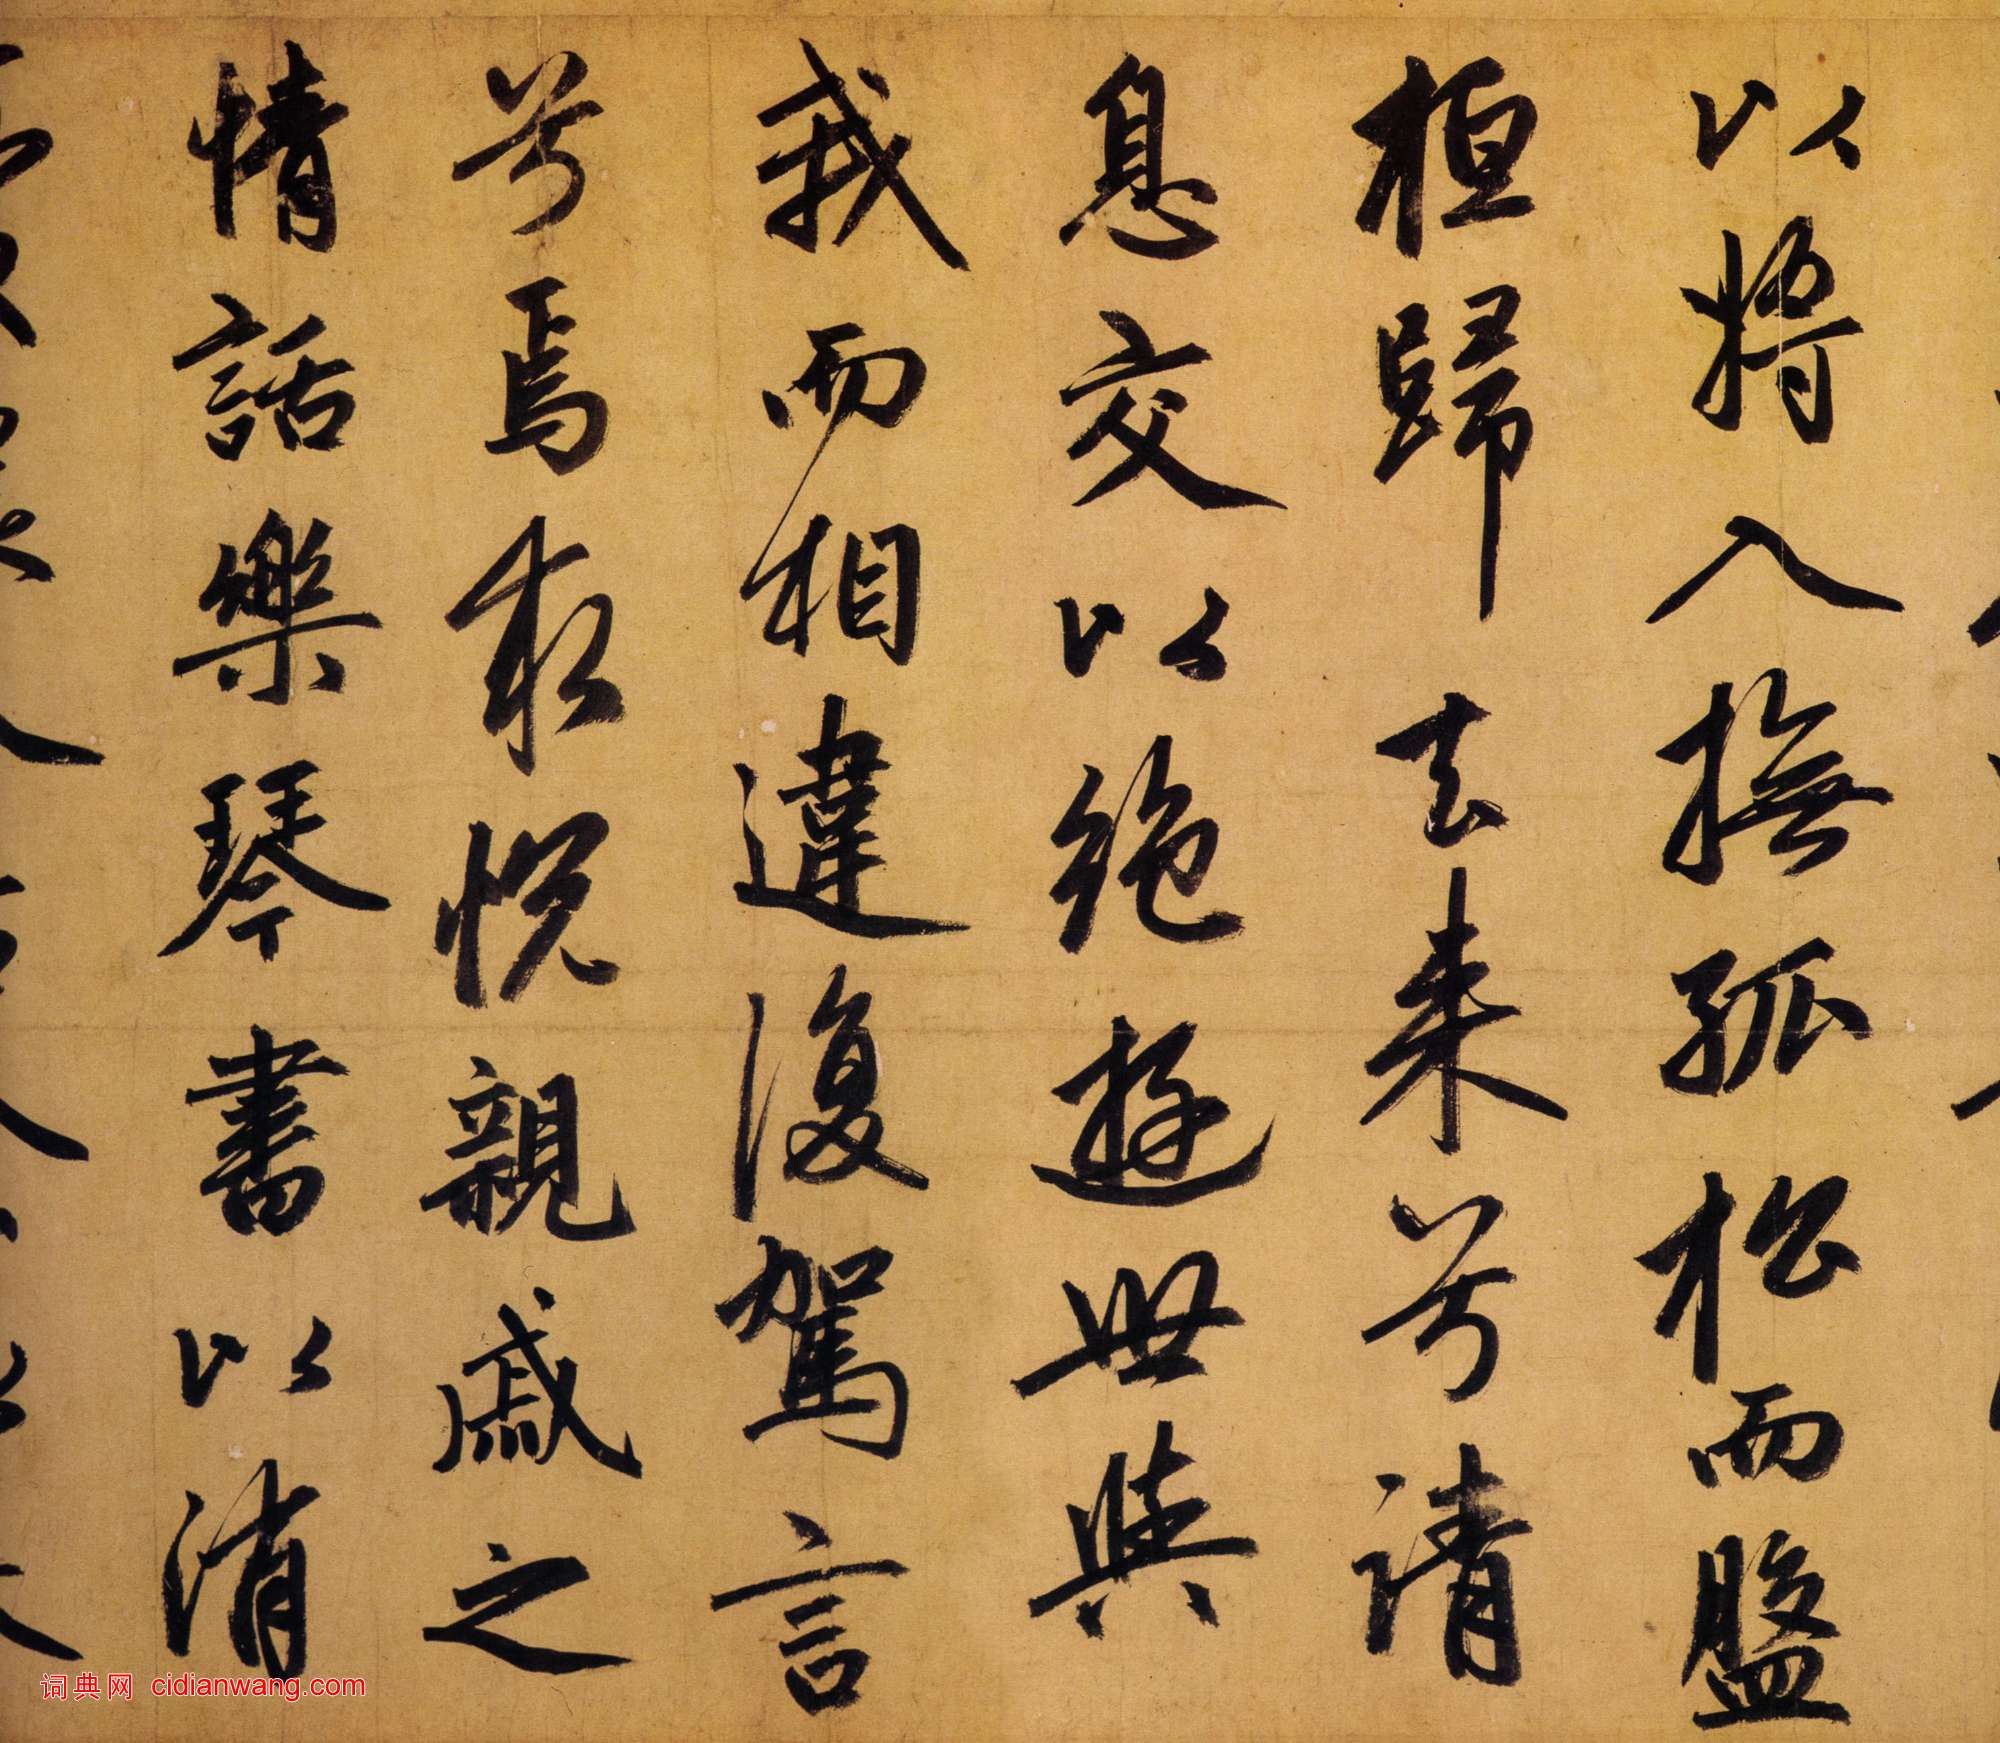 以将入撫孤松而盤
桓歸去来兮請
息交以絶遊世與
我而相違復駕言
兮焉求悦親戚之
情話樂琴書以消
词典网 cidianwang.com